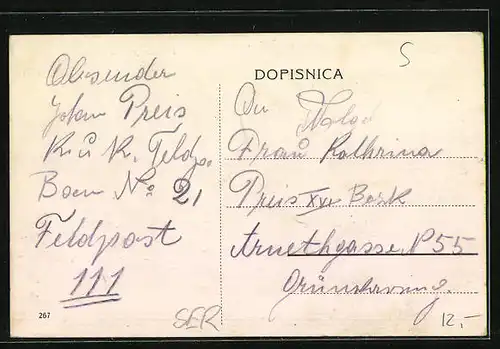 Absender
Johan Preis
K. u. K. Feldp.
Baon No 21
Feldpost
111
DOPISNICA
An
Frau Kathrina
Preis XVI Bezk
Arnethgasse N 55
SER
267
5
12.-